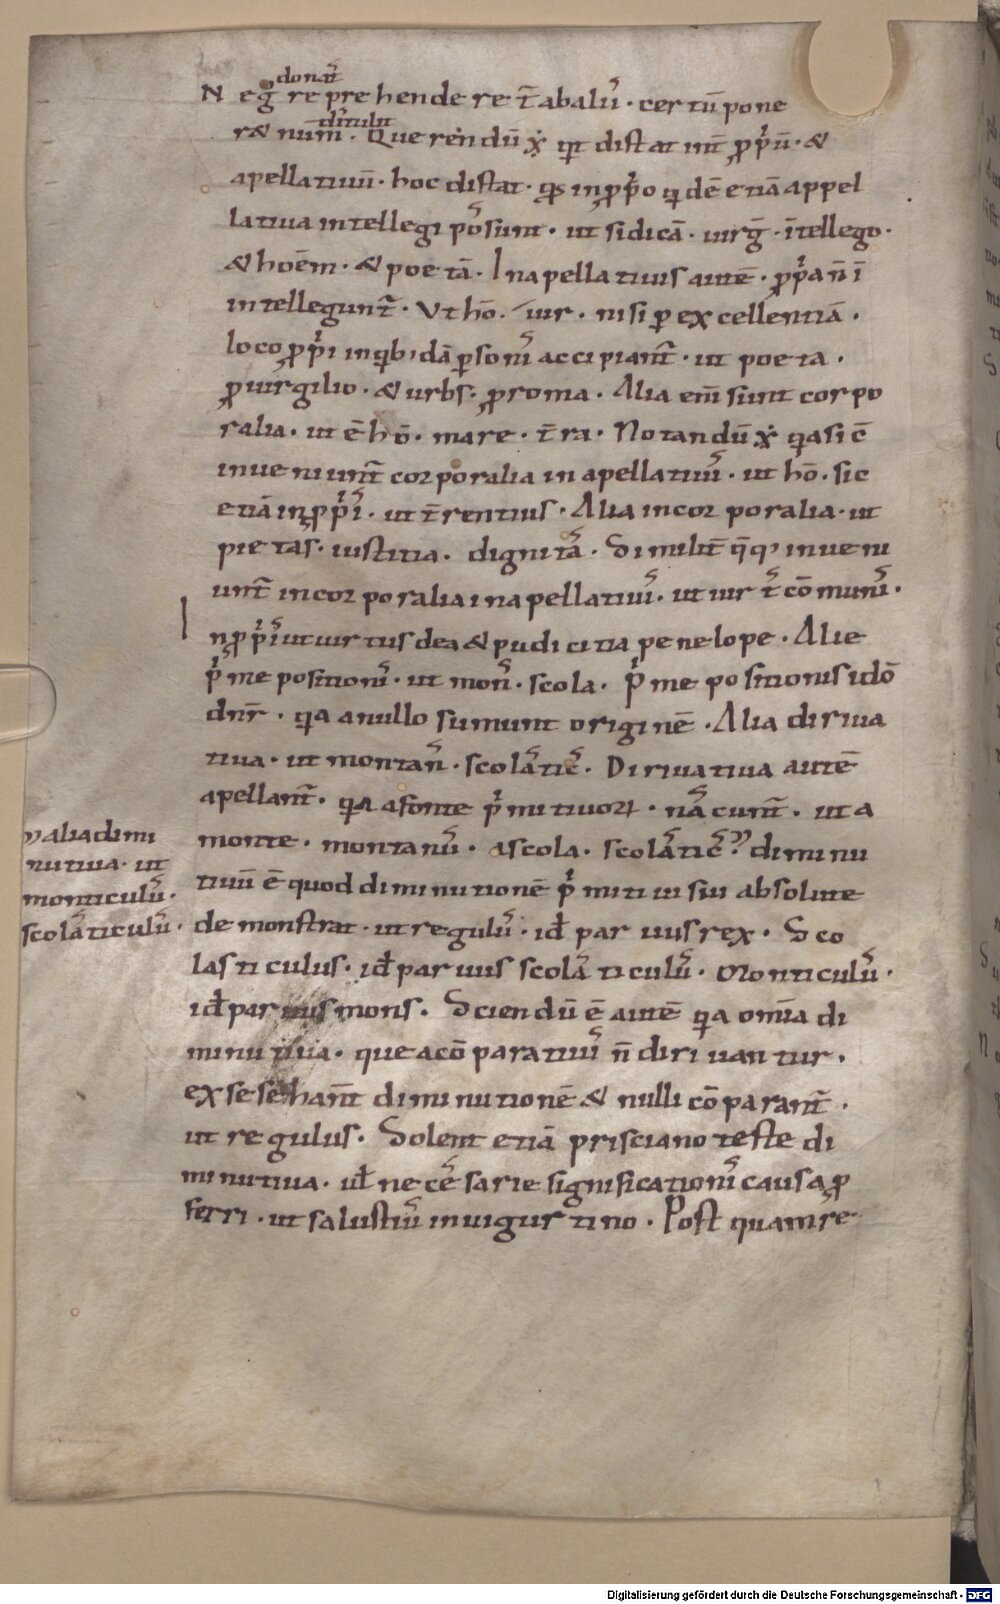 donat᷒
N eḡ reprehendere t̄ abaliū · certū pone
dītulit
r& num̄ · Querendū ẋ qit distat int̄ ꝓp̄ū · &
apellatiuū · hoc distat · qs in ꝓp̄o qdē etiā appel
latiua intellegi pōsunt · ut si dicā · uirḡ · ītellego ·
& hoēm · & poetā · In apellatiuis autē · ꝓp̄a n̄ ī
intellegunt̄ · Vt hō · uir · nisi ꝑ excellentiā ·
loco ꝓp̄i in qbidā ꝑsonī accipiant̄ · ut poeta ·
ꝓ uirgilio · & urbs · ꝓ roma · Alia em̄ sunt corpo
ralia · ut ē hō · mare · t̄ra · Notandū ẋ qa sic̄
inueniunt̄ corporalia in apellatiuī · ut hō · sic
etiā in ꝓp̄ī · ut t̄rentius · Alia incorporalia · ut
pietas · iustitia · dignitā · Similit̄ q̄q inueni
unt̄ incorporalia in apellatiuī · ut uir t̄ cōmunī ·
In ꝓp̄ī ut uirtus dea & pudicitia penelope · Alie
p̄me positionī · ut mon̄ · scola · p̄me positionis idō
dn̄r · qa a nullo sumunt originē · Alia diriua
tiua · ut montan̄ · scolātic̄ · Diriuatiua autē
apellant̄ · qa a fonte p̄mitiuoꝝ · nācunt̄ · ut a
monte · montanū · a scola · scolātic̄ · diminu
tiuū ē quod diminutionē p̄mitiui sui absolute
demonstrat · ut regulū · id̄ paruus rex · Sco
lasticulus · id̄ paruus scolāticulū · Monticulū ·
id̄ paruus mons · Sciendū ē autē qa om̄ia di
minutiua · que a cōparatiuī n̄ diriuantur ·
ex sese hant̄ diminutionē & nulli cōparant̄ ·
ut regulus · Solent etiā prisciano teste di
minutiua · ul̄ necēsarie significationī causa ꝓ
ferri · ut salustiū in uigurtino · Post quam re
alia dimi
nutiua · ut
monticulū ·
scolāticulū ·
Digitalisierung gefördert durch die Deutsche Forschungsgemeinschaft · DFG